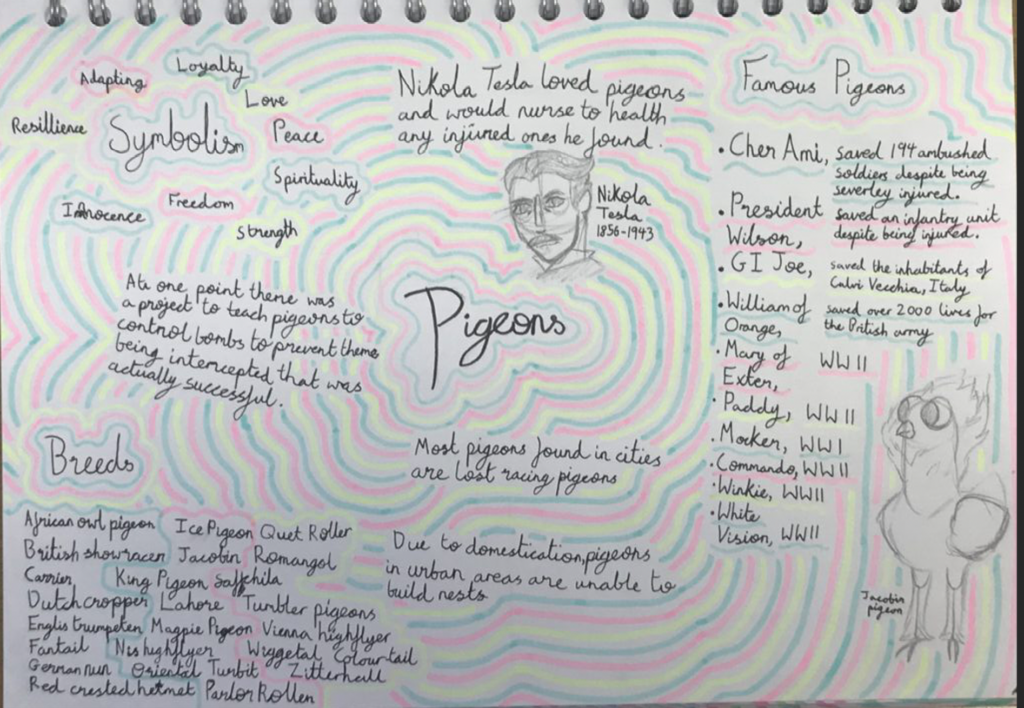 Symbolism
Adapting
Loyalty
Love
Resillience
Peace
Spirituality
Innocence
Freedom
Strength
Nikola Tesla loved pigeons
and would nurse to health
any injured ones he found.
Nikola
Tesla
1856-1943
At one point there was
a project to teach pigeons to
control bombs to prevent theme
being intercepted that was
actually successful.
Pigeons
Most pigeons found in cities
are lost racing pigeons
Due to domestication, pigeons
in urban areas are unable to
build nests
Breeds
African owl pigeon Ice Pigeon Quet Roller
British showracer Jacobin Romangol
Carrier King Pigeon Saffchila
Dutch cropper Lahore Tumbler pigeons
Englis trumpeten Magpie Pigeon Vienna highflyer
Fantail Nis highflyer Wiggetal Colour-tail
German nun Oriental Turbit
Red crested hetmet Parlor Rollen
Famous Pigeons
• Cher Ami, saved 194 ambushed
soldiers despite being
severley injured.
• President saved an infantry unit
Wilson, despite being injured.
• GI Joe, saved the inhabitants of
Calvi Vecchia, Italy
• William of saved over 2000 lives for
Orange, the British army
• Mary of WW II
Exter,
• Paddy, WW II
• Mocker, WW I
• Commando, WW II
• Winkie, WWII
• White
Vision, WWII
Jacobin
pigeon